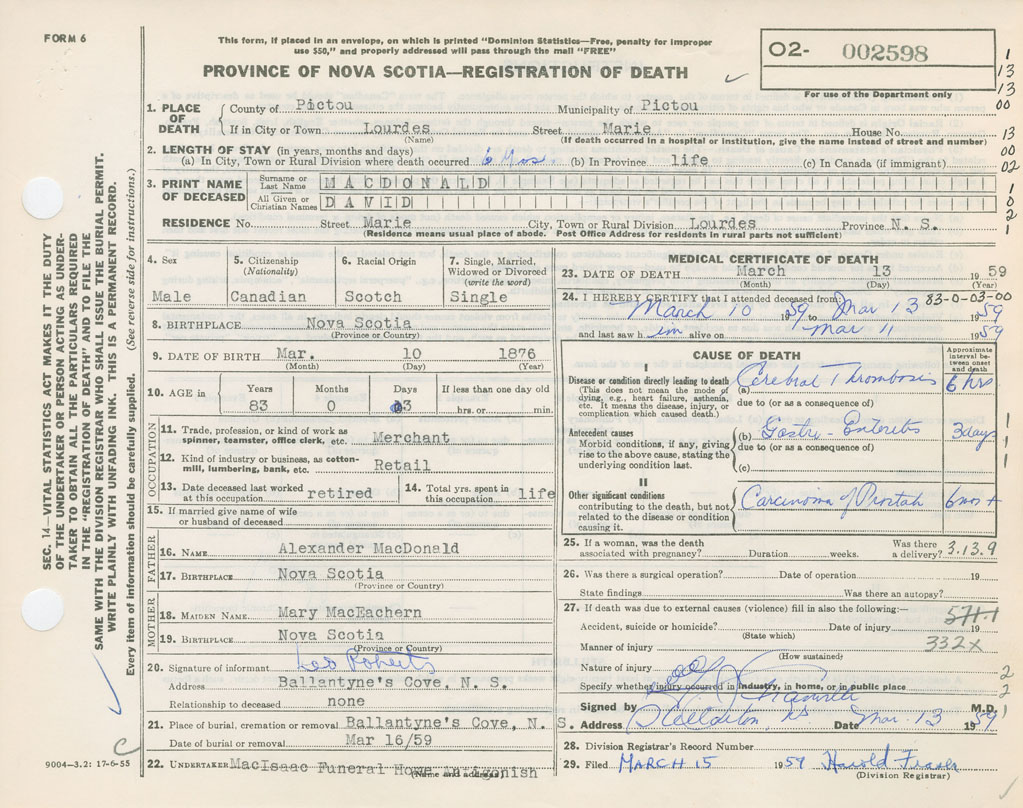 FORM 6
This form, if placed in an envelope, on which is printed "Dominion Statistics—Free, penalty for improper
use $50," and properly addressed will pass through the mail "FREE"
PROVINCE OF NOVA SCOTIA—REGISTRATION OF DEATH
O2- 002598
For use of the Department only
1
13
13
00
13
00
02
1
0
2
1
SEC. 14—VITAL STATISTICS ACT MAKES IT THE DUTY
OF THE UNDERTAKER OR PERSON ACTING AS UNDER-
TAKER TO OBTAIN ALL THE PARTICULARS REQUIRED
IN THE "REGISTRATION OF DEATH" AND TO FILE THE
SAME WITH THE DIVISION REGISTRAR WHO SHALL ISSUE THE BURIAL PERMIT.
WRITE PLAINLY WITH UNFADING INK. THIS IS A PERMANENT RECORD.
Every item of information should be carefully supplied. (See reverse side for instructions.)
1. PLACE OF DEATH
County of Pictou Municipality of Pictou
If in City or Town Lourdes Street Marie House No.
(Name) (If death occurred in a hospital or institution, give the name instead of street and number)
2. LENGTH OF STAY (in years, months and days)
(a) In City, Town or Rural Division where death occurred 6 Mos. (b) In Province life (c) In Canada (if immigrant)
3. PRINT NAME OF DECEASED
Surname or Last Name MACDONALD
All Given or Christian Names DAVID
RESIDENCE No. Street Marie City, Town or Rural Division Lourdes Province N. S.
(Residence means usual place of abode. Post Office Address for residents in rural parts not sufficient)
4. Sex
Male
5. Citizenship
(Nationality)
Canadian
6. Racial Origin
Scotch
7. Single, Married,
Widowed or Divorced
(write the word)
Single
8. BIRTHPLACE Nova Scotia
(Province or Country)
9. DATE OF BIRTH Mar. 10 1876
(Month) (Day) (Year)
10. AGE in
Years Months Days If less than one day old
83 0 03 hrs. or min.
OCCUPATION
11. Trade, profession, or kind of work as
spinner, teamster, office clerk, etc. Merchant
12. Kind of industry or business, as cotton-
mill, lumbering, bank, etc. Retail
13. Date deceased last worked
at this occupation retired
14. Total yrs. spent in
this occupation life
15. If married give name of wife
or husband of deceased
FATHER
16. NAME Alexander MacDonald
17. BIRTHPLACE Nova Scotia
(Province or Country)
MOTHER
18. MAIDEN NAME Mary MacEachern
19. BIRTHPLACE Nova Scotia
(Province or Country)
20. Signature of informant Leo Roberts
Address Ballantyne's Cove, N. S.
Relationship to deceased none
21. Place of burial, cremation or removal Ballantyne's Cove, N. S.
Date of burial or removal Mar 16/59
22. UNDERTAKER MacIsaac Funeral Home Antigonish
(Name and address)
9004—3.2: 17-6-55
C
MEDICAL CERTIFICATE OF DEATH
23. DATE OF DEATH March 13 1959
(Month) (Day) (Year)
24. I HEREBY CERTIFY that I attended deceased from: 83-0-03-00
March 10 1959 to Mar 13 1959
and last saw h im alive on Mar 11 1959
CAUSE OF DEATH
Approximate
interval be-
tween onset
and death
I
Disease or condition directly leading to death
(This does not mean the mode of
dying, e.g., heart failure, asthenia,
etc. It means the disease, injury, or
complication which caused death.)
(a) Cerebral Thrombosis 6 hrs
due to (or as a consequence of)
Antecedent causes
Morbid conditions, if any, giving
rise to the above cause, stating the
underlying condition last.
(b) Gastro-Enteritis 3 days
due to (or as a consequence of)
(c)
II
Other significant conditions
contributing to the death, but not
related to the disease or condition
causing it.
Carcinoma of Prostate 6 mos +
25. If a woman, was the death
associated with pregnancy? Duration weeks.
Was there
a delivery? 3.13.9
26. Was there a surgical operation? Date of operation 19
State findings Was there an autopsy?
27. If death was due to external causes (violence) fill in also the following:—
571.1
Accident, suicide or homicide? Date of injury 19
(State which)
Manner of injury 332X
(How sustained)
Nature of injury
Specify whether injury occurred in industry, in home, or in public place
Signed by M.D.
Address Date Mar. 13 1959
28. Division Registrar's Record Number
29. Filed MARCH 15 1959 Harold Fraser
(Division Registrar)
1
1
1
2
2
1